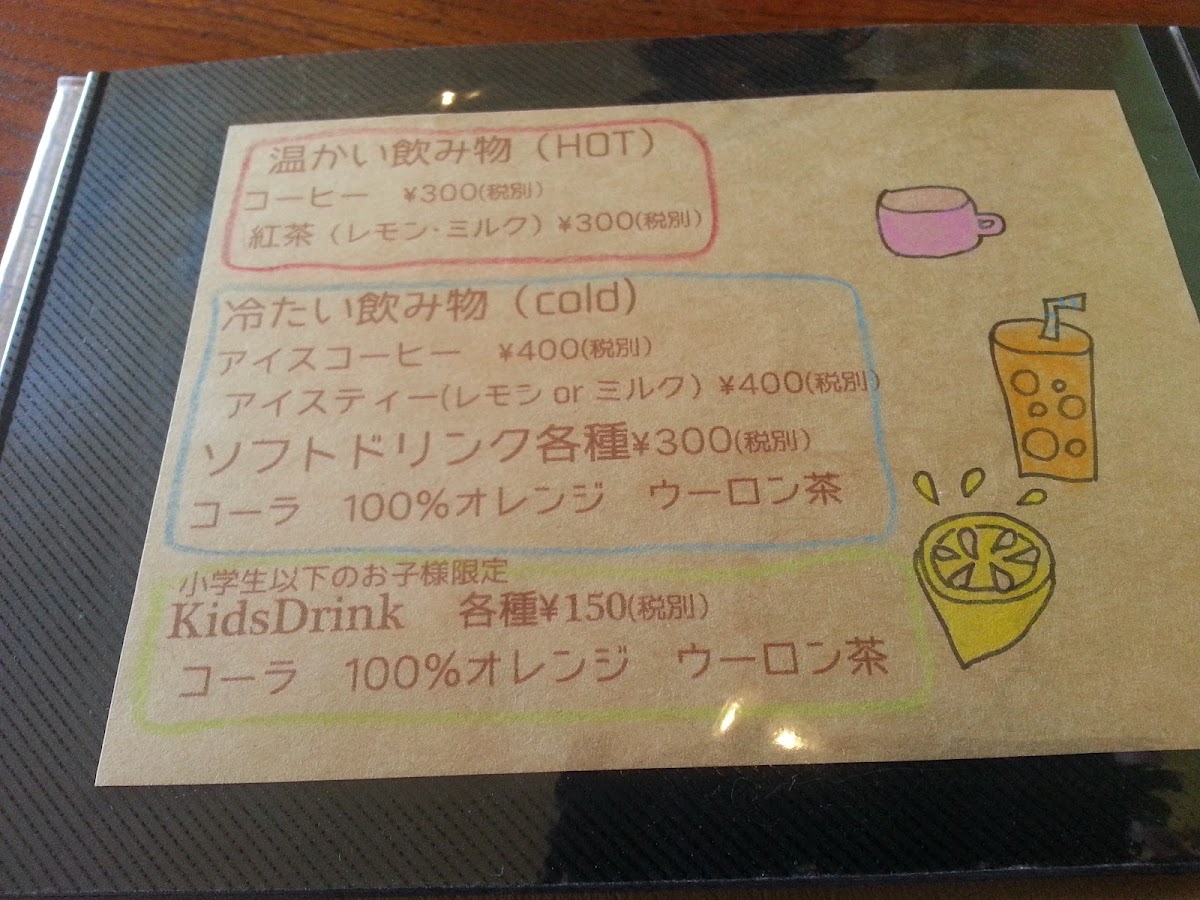 温かい飲み物（HOT）
コーヒー　¥300(税別)
紅茶（レモン・ミルク）¥300(税別)
冷たい飲み物（cold）
アイスコーヒー　¥400(税別)
アイスティー(レモン or ミルク）¥400(税別)
ソフトドリンク各種¥300(税別)
コーラ　100%オレンジ　ウーロン茶
小学生以下のお子様限定
KidsDrink　各種¥150(税別)
コーラ　100%オレンジ　ウーロン茶